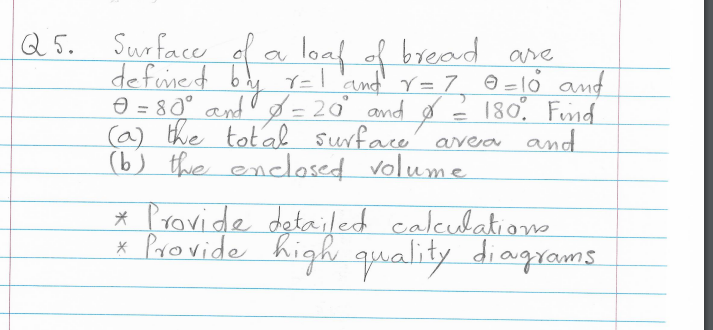 Q 5. Surface of a loaf of bread are
defined by r=1 and r=7, θ=10° and
θ = 80° and ø = 20° and ø = 180°. Find
(a) the total surface area and
(b) the enclosed volume
* Provide detailed calculations
* Provide high quality diagrams